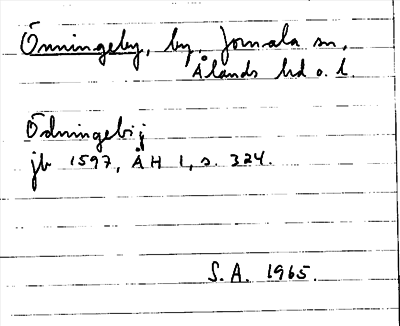 Önningeby, by, Jomala sn,
Ålands hd o. l.
Ödningebij
jb 1597, ÅH 1, s. 324.
S. A. 1965.